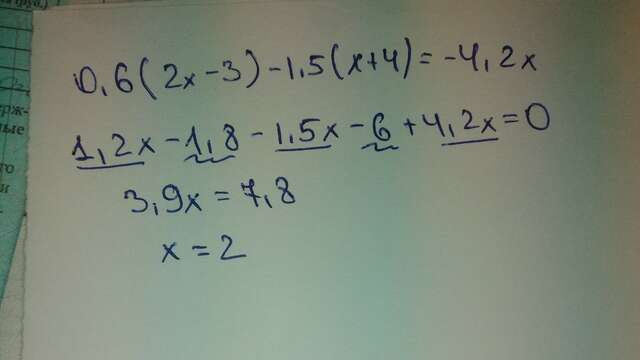 0,6(2x-3)-1,5(x+4)=-4,2x
1,2x-1,8-1,5x-6+4,2x=0
3,9x=7,8
x=2